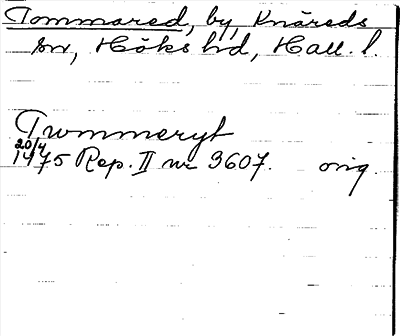 Tommared, by, Knäreds
sn, Höks hd, Hall. l.
Twmmeryt
20/4
1475 Rep. II nr 3607. orig.